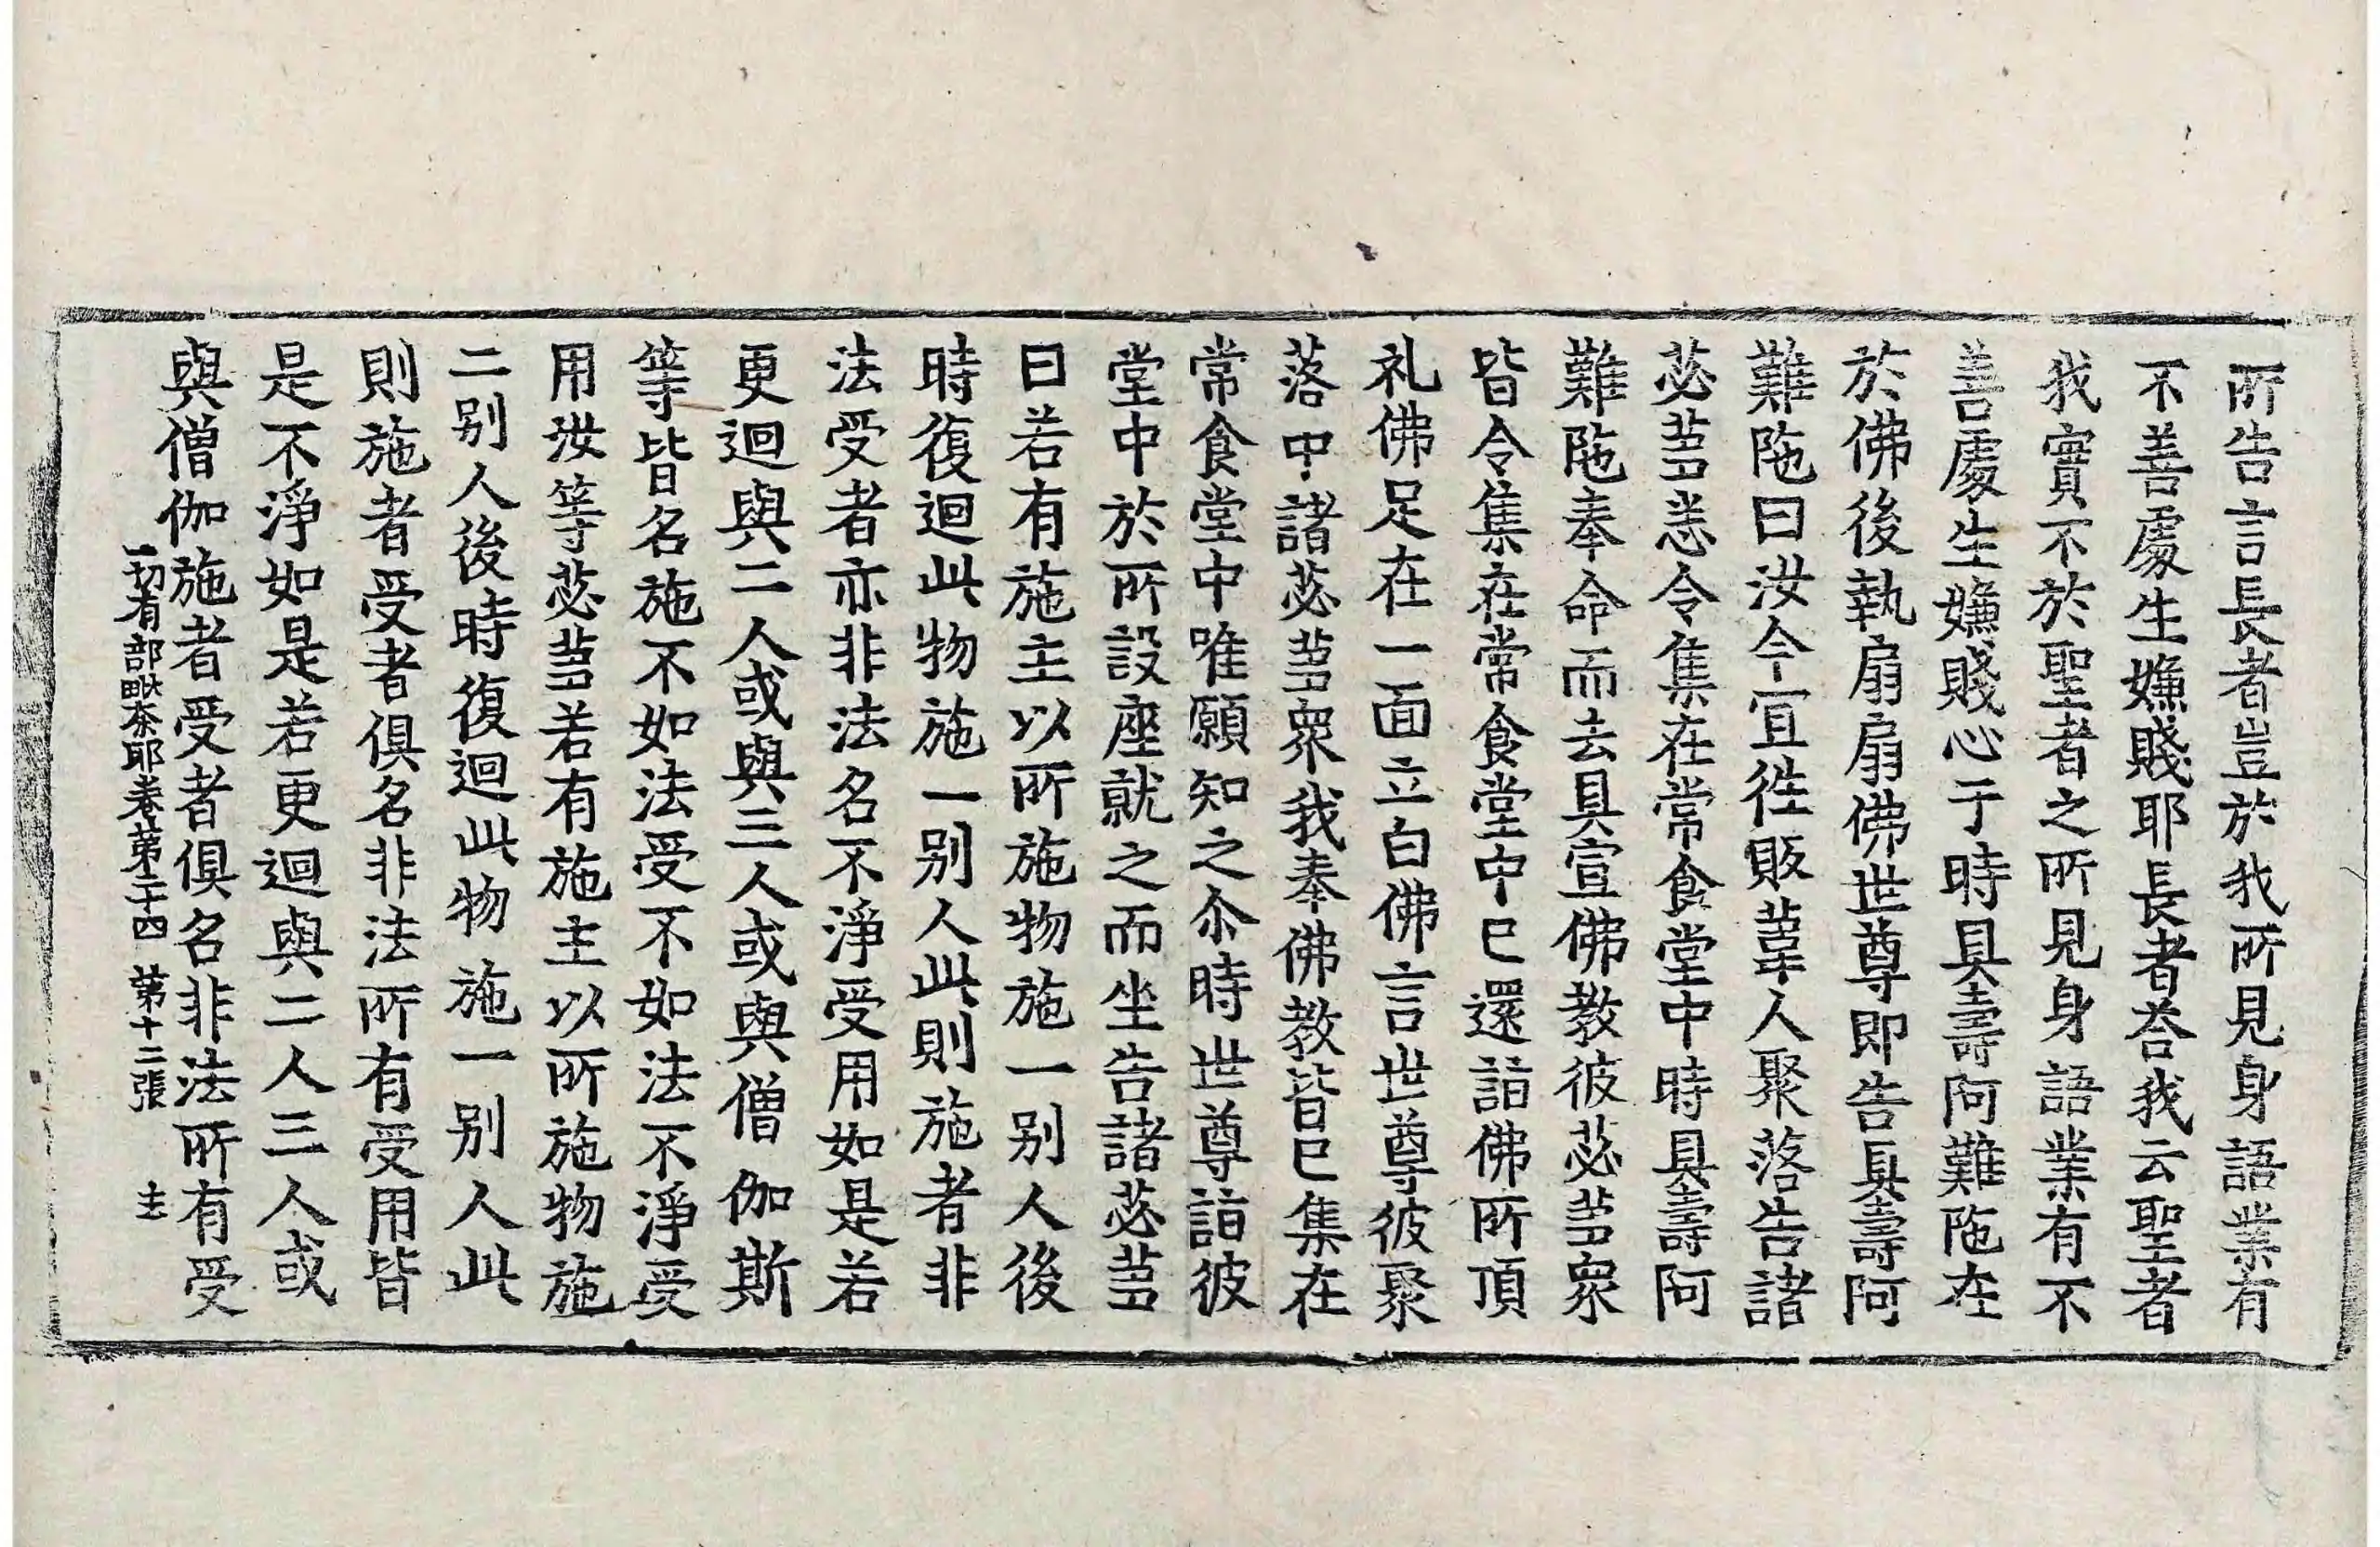 所告言長者豈於我所見身語業有
不善處生嫌賤耶長者荅我云聖者
我實不於聖者之所見身語業有不
善處生嫌賤心于時具壽阿難陁在
於佛後執扇扇佛世尊即告具壽阿
難陁曰汝今宜徃販葦人聚落告諸
苾芻悉令集在常食堂中時具壽阿
難陁奉命而去具宣佛教彼苾芻衆
皆令集在常食堂中已還詣佛所頂
礼佛足在一面立白佛言世尊彼聚
落中諸苾芻衆我奉佛教皆已集在
常食堂中唯願知之尒時世尊詣彼
堂中於所設座就之而坐告諸苾芻
曰若有施主以所施物施一别人後
時復迴此物施一别人此則施者非
法受者亦非法名不淨受用如是若
更迴與二人或與三人或與僧伽斯
等皆名施不如法受不如法不淨受
用汝等苾芻若有施主以所施物施
二别人後時復迴此物施一别人此
則施者受者俱名非法所有受用皆
是不淨如是若更迴與二人三人或
與僧伽施者受者俱名非法所有受
一切有部毗奈耶卷第二十四 第十二張 圭